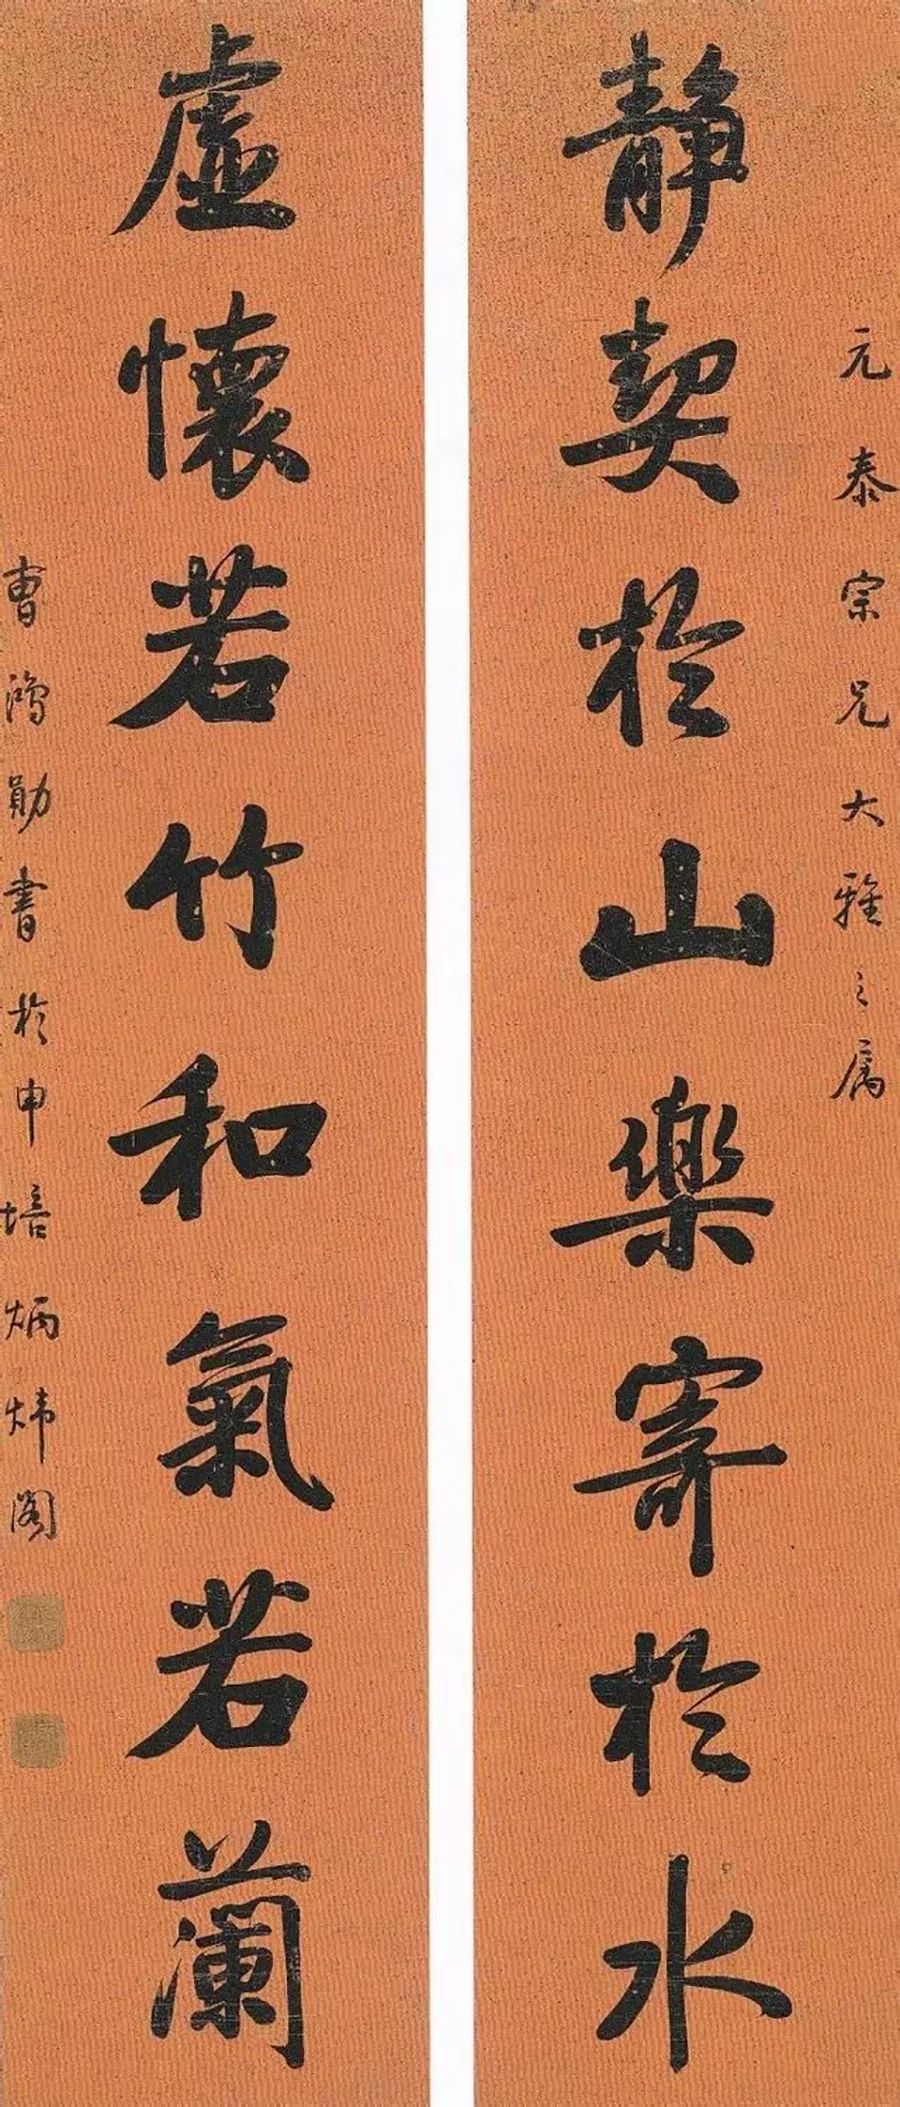 元泰宗兄大雅之属
静契於山樂寄於水
虚懷若竹和氣若蘭
曹鴻勛書於申培炳煒閣